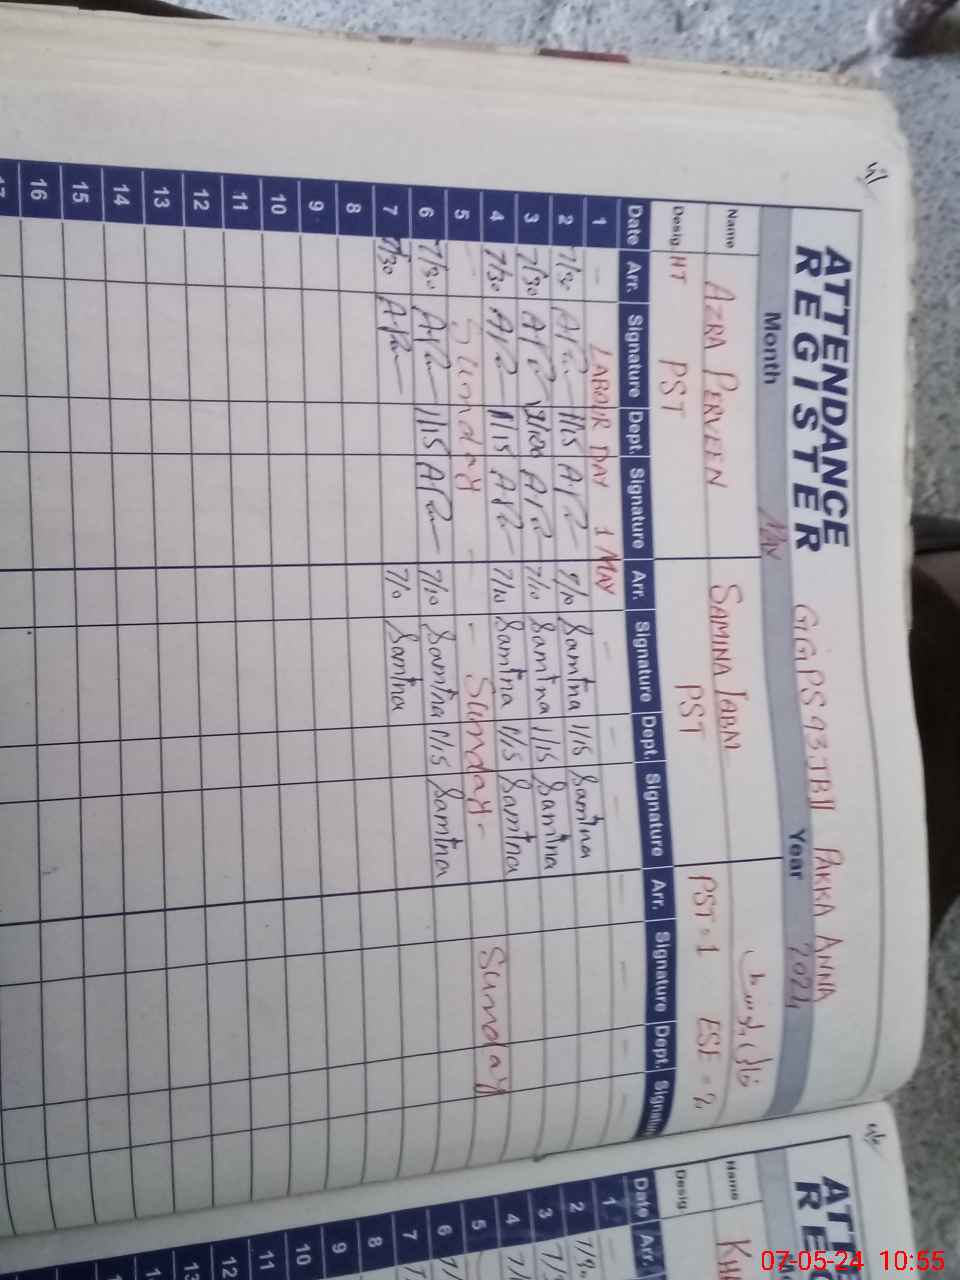 ATTENDANCE REGISTER GGPS 93 JB II PAKKA ANNA
Month MAY Year 2024
Name AZRA PERVEEN SAMINA IQBAL
Desig. HT PST PST PST=1 ESE=2
Date Arr. Signature Dept. Signature Arr. Signature Dept. Signature Arr. Signature Dept. Signature
1 - LABOUR DAY 1 MAY - - - - - - -
2 7/30 1/15 8/10 Samina 1/15 Samina
3 7/30 7/10 Samina 1/15 Samina
4 7/30 11/15 7/10 Samina 1/15 Samina
5 - Sunday - - Sunday - Sunday
6 7/30 11/15 7/10 Samina 1/15 Samina
7 7/30 7/10 Samina
8
9
10
11
12
13
14
15
16
17
Name
Desig
Date Arr.
1
2
3
4
5
6
7
8
9
10
11
12
07-05-24 10:55